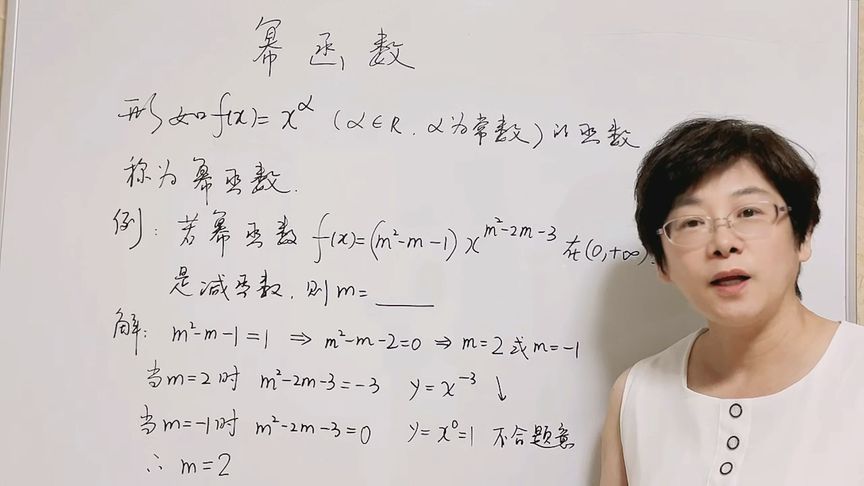 幂函数
形如f(x)=x^α (α∈R, α为常数)的函数
称为幂函数.
例: 若幂函数 f(x)=(m²-m-1)x^{m²-2m-3} 在(0,+∞)
是减函数, 则m=____
解: m²-m-1=1 ⇒ m²-m-2=0 ⇒ m=2 或 m=-1
当m=2时 m²-2m-3=-3 y=x^{-3} ↓
当m=-1时 m²-2m-3=0 y=x^0=1 不合题意
∴ m=2